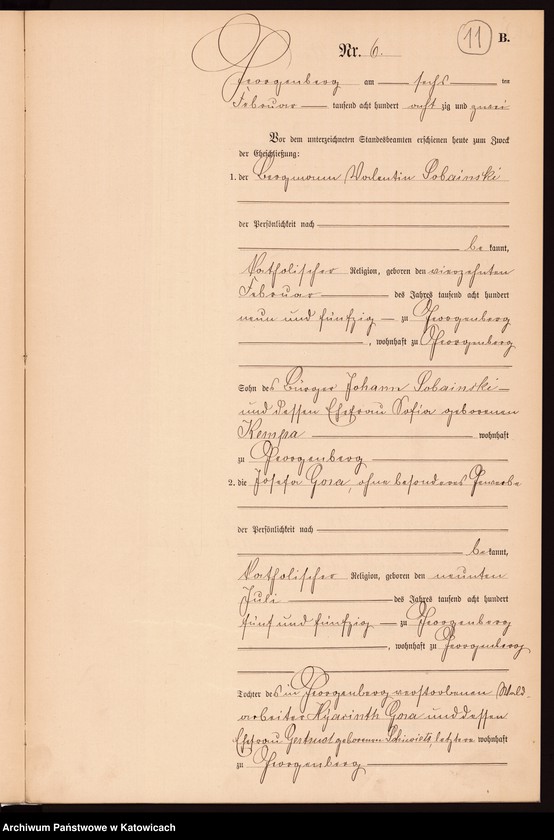 11
B.
Nr. 6.
Georgenberg am sechs ten
Februar tausend acht hundert acht zig und zwei
Vor dem unterzeichneten Standesbeamten erschienen heute zum Zweck
der Eheschließung:
1. der Bergmann Valentin Sobainski
der Persönlichkeit nach
be kannt,
katholischer Religion, geboren den vierzehnten
Februar des Jahres tausend acht hundert
neun und fünfzig zu Georgenberg
, wohnhaft zu Georgenberg
Sohn des Bürger Johann Sobainski
und dessen Ehefrau Sofia geborenen
Kempa wohnhaft
zu Georgenberg
2. die Josefa Gora, ohne besonderes Gewerbe
der Persönlichkeit nach
be kannt,
katholischer Religion, geboren den neunten
Juli des Jahres tausend acht hundert
fünf und fünfzig zu Georgenberg
, wohnhaft zu Georgenberg
Tochter des in Georgenberg verstorbenen
arbeiter Hyacinth Gora und dessen
Ehefrau Gertrud geborenen letztere wohnhaft
zu Georgenberg
Archiwum Państwowe w Katowicach